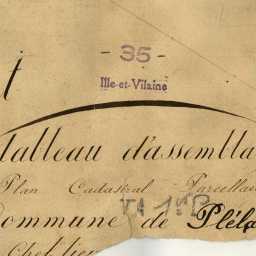 - 35 -
Ille-et-Vilaine
t
Tableau d'assembla
Plan Cadastral Parcellai
Commune de Pléla
Chef lieu